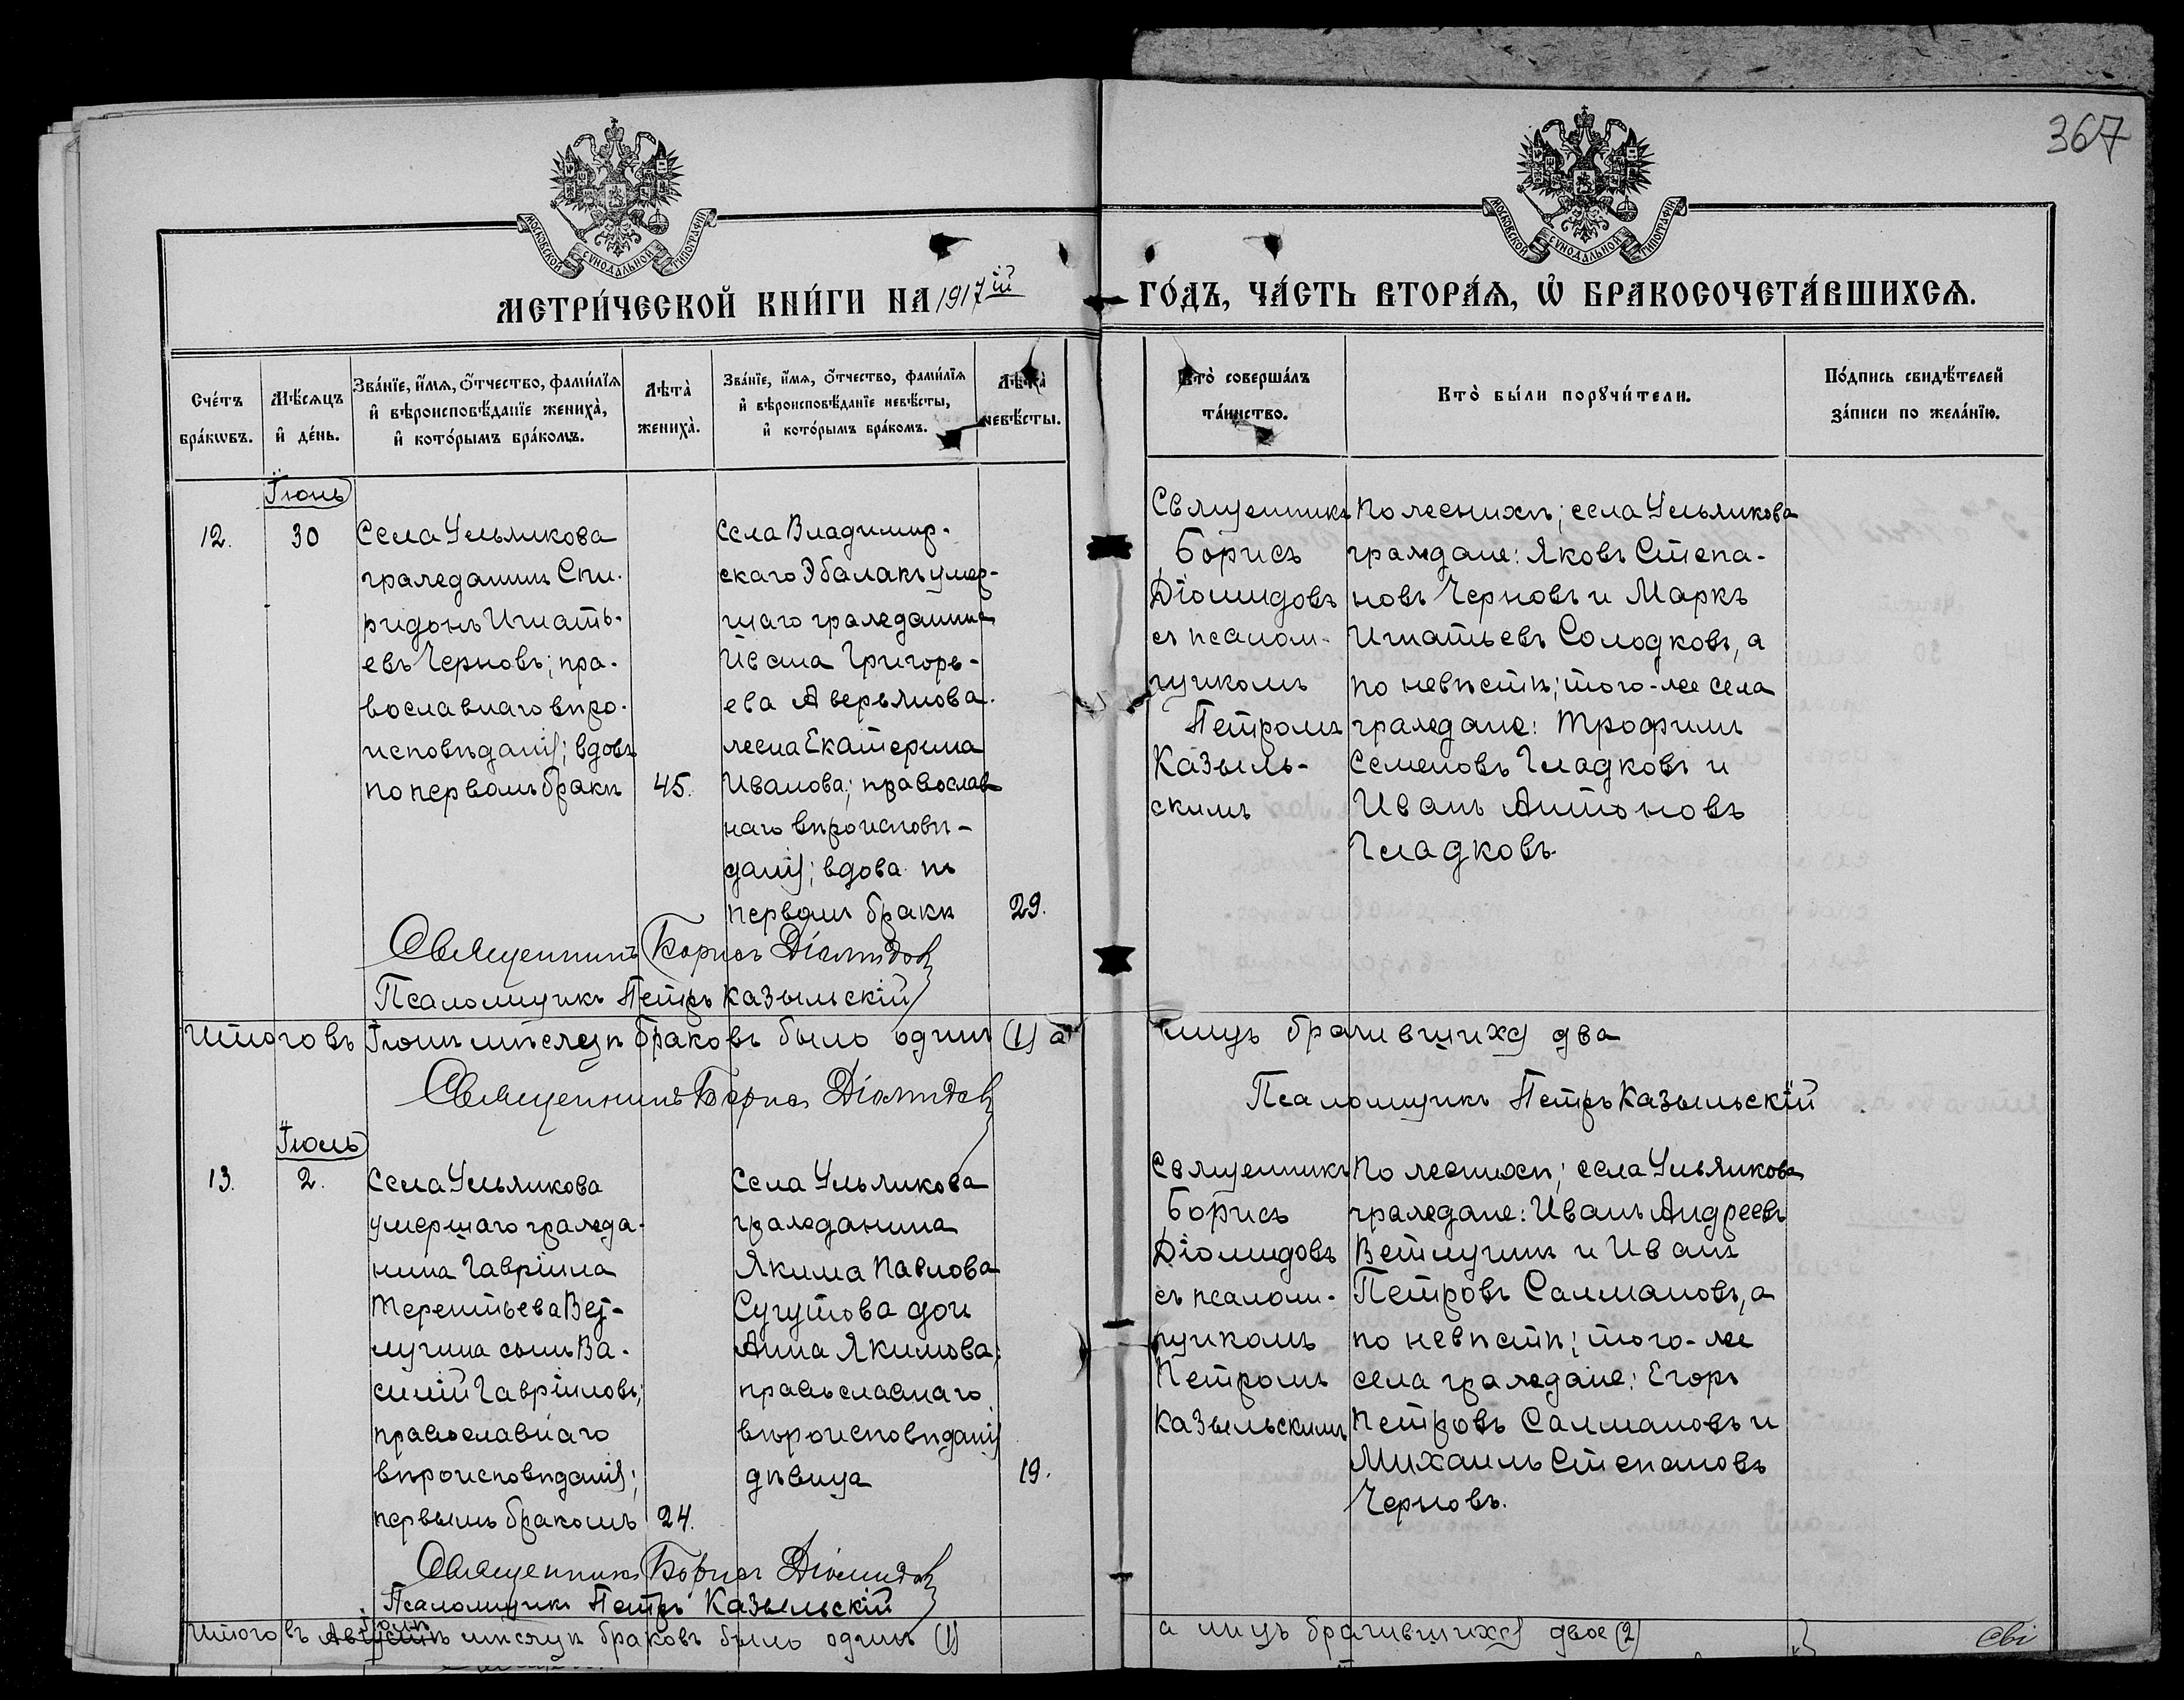 367
МОСКОВСКОЙ СѴНОДАЛЬНОЙ ТИПОГРАФІИ
МОСКОВСКОЙ СѴНОДАЛЬНОЙ ТИПОГРАФІИ
МЕТРИ́ЧЕСКОЙ КНИ́ГИ НА 1917ій ГО́ДЪ, ЧА́СТЬ ВТОРА́Я, Ѡ БРАКОСОЧЕТА́ВШИХСЯ.
Счётъ
бра́кωвъ.
Мѣ́сяцъ
и҆ де́нь.
Зва́нїе, и҆́мя, ѻ҆́тчество, фами́лїя
и҆ вѣроисповѣ́данїе жениха̀,
и҆ кото́рымъ бра́комъ.
Лѣта̀
жениха̀.
Зва́нїе, и҆́мя, ѻ҆́тчество, фами́лїя
и҆ вѣроисповѣ́данїе невѣ́сты,
и҆ кото́рымъ бра́комъ.
Лѣта̀
невѣ́сты.
Кто̀ соверша́лъ
та́инство.
Кто̀ бы́ли порꙋчи́тели.
По́дпись свидѣ́телей
за́писи по жела́нїю.
Іюнь
12.
30
Села Ульянкова
гражданинъ Спи-
ридонъ Игнать-
евъ Черновъ; пра-
вославнаго вѣро-
исповѣданія; вдовъ
по первомъ бракѣ
45.
Села Владимир-
скаго Эбалакъ умер-
шаго гражданина
Ивана Григорь-
ева Аверьянова
жена Екатерина
Иванова; православ
наго вѣроисповѣ-
данія; вдова по
первомъ бракѣ
29.
Священникъ
Борисъ
Діомидовъ
съ псалом-
щикомъ
Петромъ
Казыль-
скимъ
По женихѣ; села Ульянкова
граждане: Яковъ Степа-
новъ Черновъ и Маркъ
Игнатьевъ Солодковъ, а
по невѣстѣ; того-же села
граждане: Трофимъ
Семеновъ Гладковъ и
Иванъ Антоновъ
Гладковъ.
Священникъ Борисъ Діомидовъ
Псаломщикъ Петръ Казыльскій
Итого въ Іюнѣ мѣсяцѣ браковъ было одинъ (1) а лицъ брачившихся два
Священникъ Борисъ Діомидовъ
Псаломщикъ Петръ Казыльскій
Іюль
13.
2.
Села Ульянкова
умершаго гражда-
нина Гавріила
Терентьева Вет-
лугина сынъ Ва-
силій Гавріиловъ;
православнаго
вѣроисповѣданія;
первымъ бракомъ
24.
Села Ульянкова
гражданина
Якима Павлова
Сугутова дочь
Анна Якимова;
православнаго
вѣроисповѣданія
дѣвица
19.
Священникъ
Борисъ
Діомидовъ
съ псалом-
щикомъ
Петромъ
Казыльскимъ
По женихѣ; села Ульянкова
граждане: Иванъ Андреевъ
Ветлугинъ и Иванъ
Петровъ Салмановъ, а
по невѣстѣ; того-же
села граждане: Егоръ
Петровъ Салмановъ и
Михаилъ Степановъ
Черновъ.
Священникъ Борисъ Діомидовъ
Псаломщикъ Петръ Казыльскій
Іюлѣ
Итого въ Августѣ мѣсяцѣ браковъ было одинъ (1) а лицъ брачившихся двое (2)
Сві